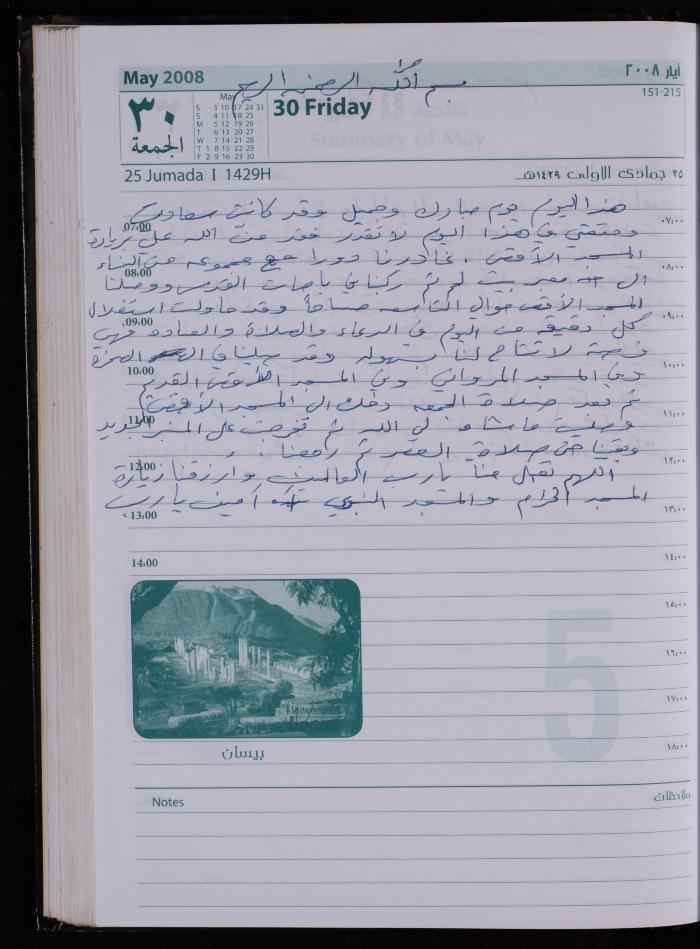 May 2008
أيار ٢٠٠٨
بسم الله الرحمن الرحيم
151-215
٣٠
الجمعة
May
S 3 10 17 24 31
S 4 11 18 25
M 5 12 19 26
T 6 13 20 27
W 7 14 21 28
T 1 8 15 22 29
F 2 9 16 23 30
30 Friday
25 Jumada I 1429H
٢٥ جمادى الاولى ١٤٢٩هـ
هذا اليوم يوم مبارك وجميل وقد كانت سعادتي
07:00
٠٧:٠٠
ومتعتي في هذا اليوم لا تقدر فقد منّ الله علي بزيارة
المسجد الأقصى . غادرنا دورا مع مجموعة من النساء
08:00
٠٨:٠٠
الى معبر بيت لحم ثم ركبنا في باصات القدس ووصلنا
المسجد الأقصى حوالي الثامنة صباحاً وقد حاولت استغلال
09:00
٠٩:٠٠
كل دقيقة من اليوم في الدعاء والصلاة والعبادة فهي
فرصة لا تتاح لنا بسهولة وقد صلينا في الصخرة
10:00
١٠:٠٠
وفي المسجد المرواني وفي المسجد الأقصى القديم
ثم بعد صلاة الجمعة دخلت الى المسجد الأقصى
11:00
١١:٠٠
وصليت ما شاء لي الله ثم تفرجت على المنبر الجديد
وبقينا حتى صلاة العصر ثم رجعنا .
12:00
١٢:٠٠
اللهم تقبل منا يا رب العالمين وارزقنا زيارة
المسجد الحرام والمسجد النبوي آمين يا رب
13:00
١٣:٠٠
14:00
١٤:٠٠
١٥:٠٠
5
١٦:٠٠
١٧:٠٠
بيسان
١٨:٠٠
Notes
ملاحظات